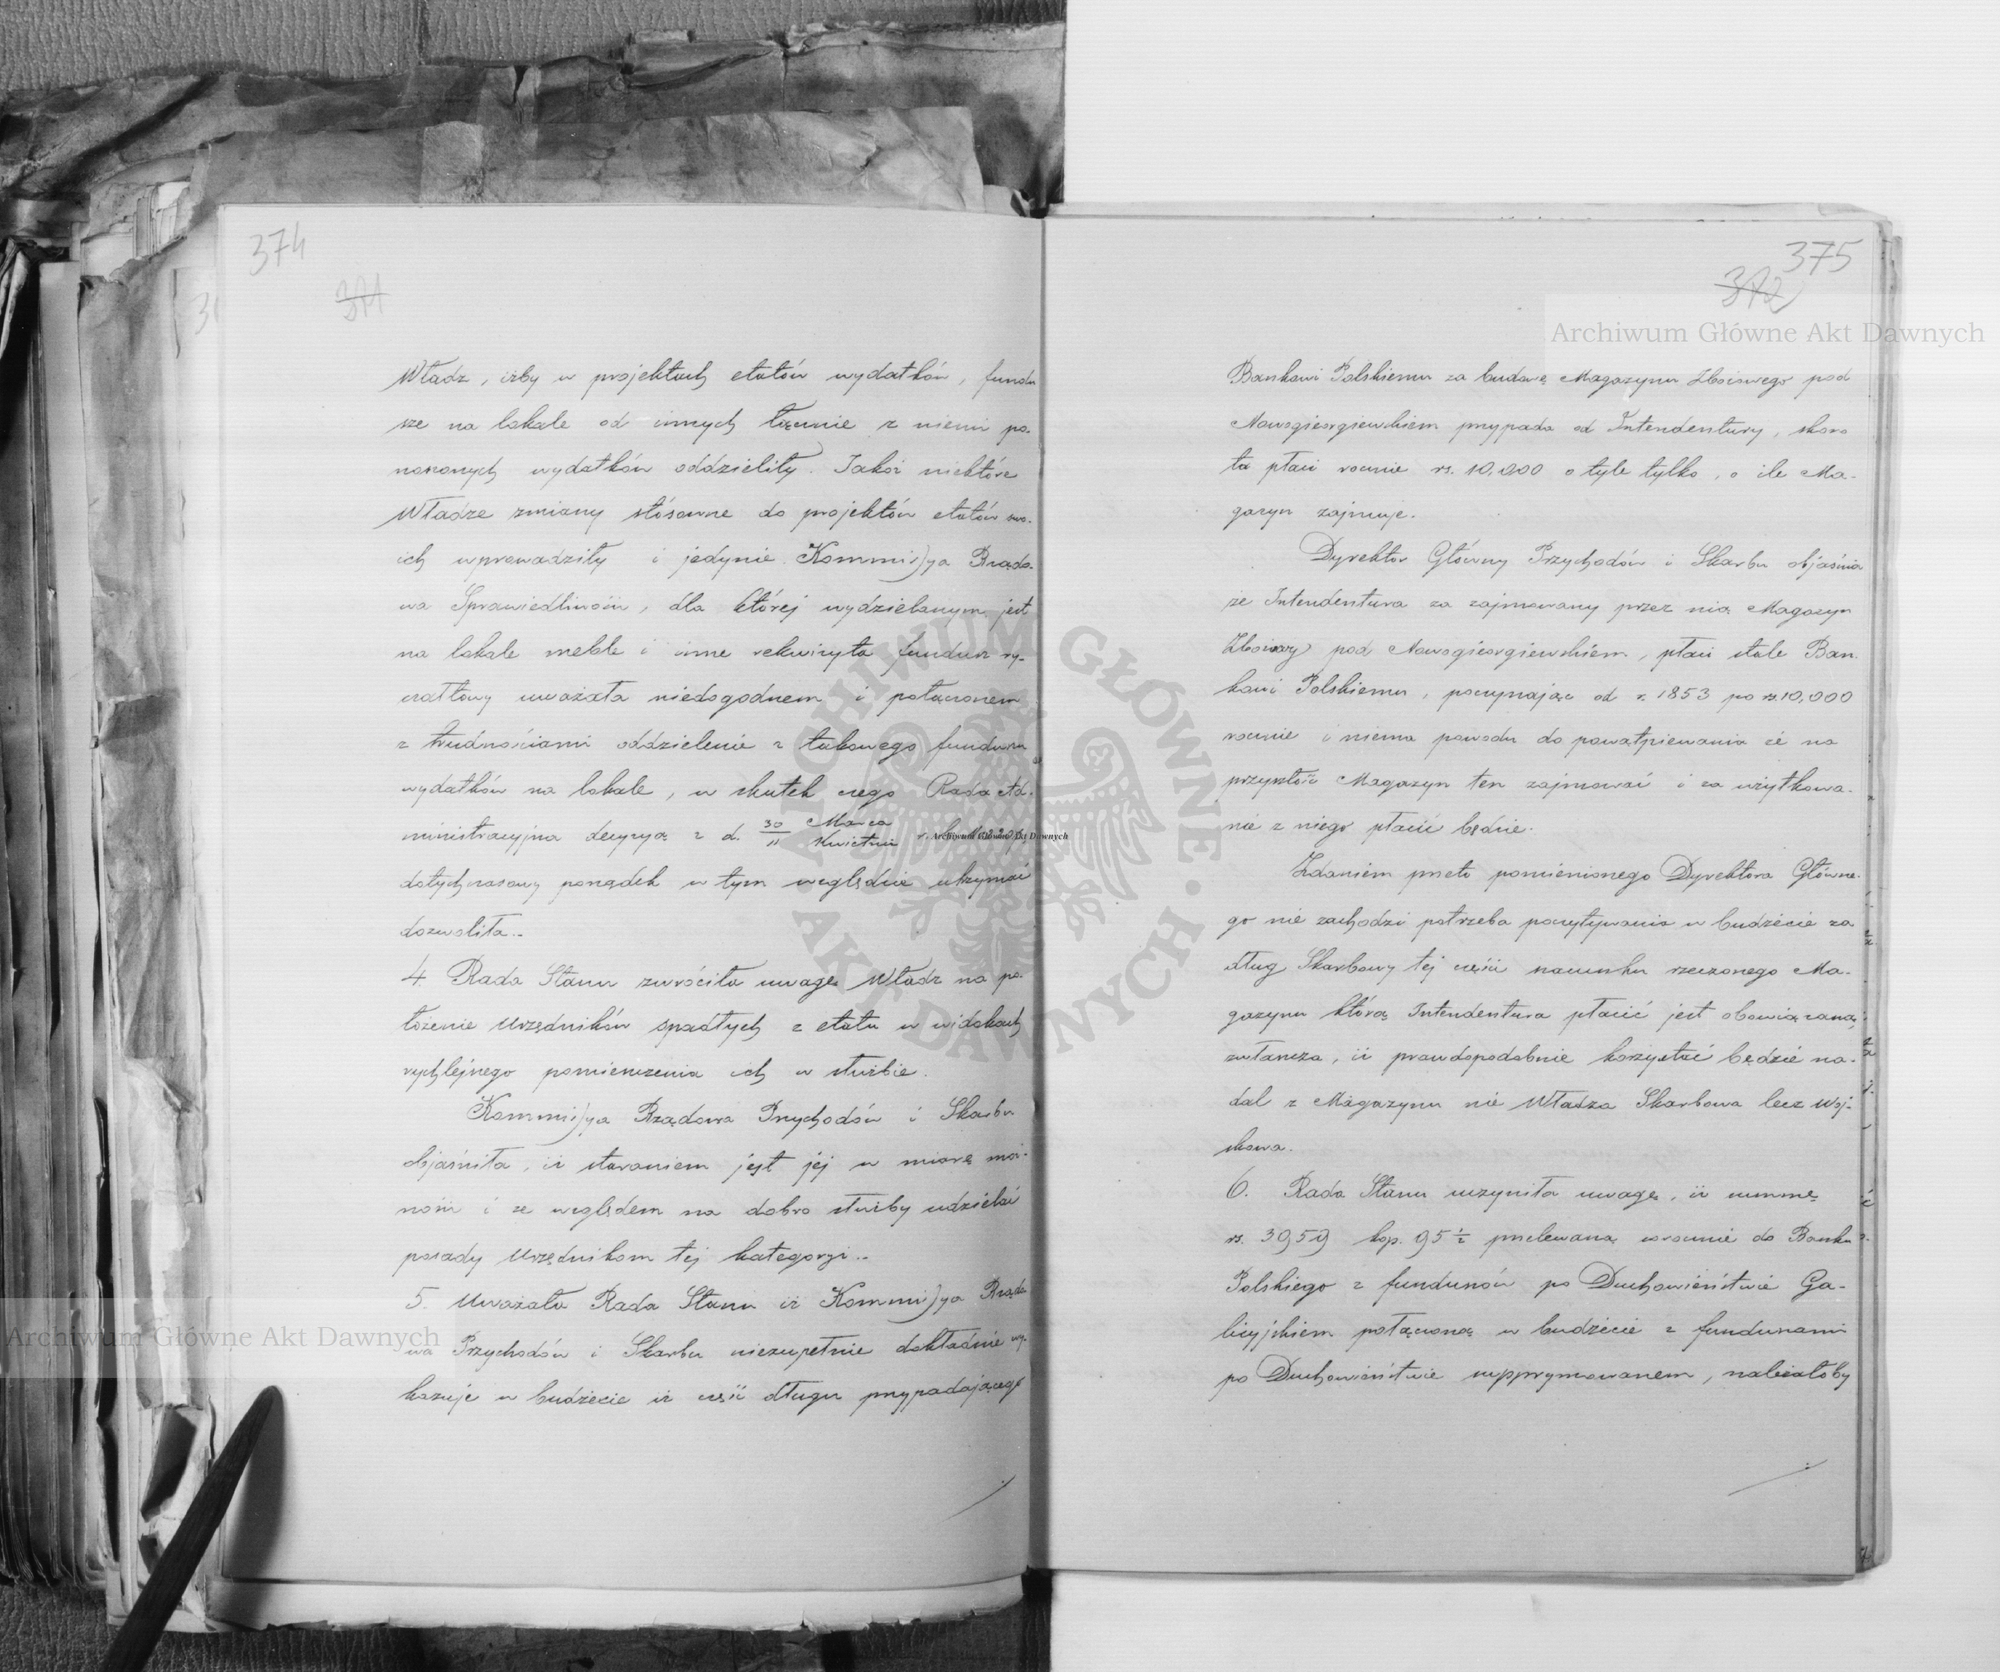 374
371
Władz, iżby w projektach etatów wydatków, fundu
sze na lokale od innych łącznie z niemi po-
noszonych wydatków oddzieliły. Jakoż niektóre
Władze zmiany stósowne do projektów etatów swo-
ich wprowadziły i jedynie Kommissya Rządo-
wa Sprawiedliwości, dla której wydzielanym jest
na lokale meble i inne rekwizyta fundusz ry-
czałtowy uważała niedogodnem i połączonem
z trudnościami oddzielenie z takowego funduszu
wydatków na lokale, w skutek czego Rada Ad-
ministracyjna decyzyą z d. 30/11 Marca/Kwietnia r. b.
dotychczasowy porządek w tym względzie utrzymać
dozwoliła.-
4 Rada Stanu zwróciła uwagę Władz na po-
łożenie Urzędników spadłych z etatu w widokach
rychlejnego pomieszczenia ich w służbie.
Kommissya Rządowa Przychodów i Skarbu
objaśniła, iż staraniem jest jej w miarę moż-
ności i ze względem na dobro służby udzielać
posady Urzędnikom tej kategoryi.-
5. Uważała Rada Stanu iż Kommissya Rządo
wa Przychodów i Skarbu niezupełnie dokładnie wy-
kazuje w budżecie iż część długu przypadającego
375
372
Bankowi Polskiemu za budowę Magazynu Zbożowego pod
Nowogieorgiewskiem przypada od Intendentury, skoro
ta płaci rocznie rs. 10,000 o tyle tylko, o ile Ma-
gazyn zajmuje.
Dyrektor Główny Przychodów i Skarbu objaśnia
że Intendentura za zajmowany przez nią Magazyn
Zbożowy pod Nowogieorgiewskiem, płaci stale Ban-
kowi Polskiemu, poczynając od r. 1853 po rs. 10,000
rocznie i niema powodu do powątpiewania że na
przyszłość Magazyn ten zajmować i za użytkowa-
nie z niego płacić będzie.
Zdaniem przeto pomienionego Dyrektora Główne-
go nie zachodzi potrzeba poczytywania w budżecie za
dług Skarbowy tej części szacunku rzeczonego Ma-
gazynu którą Intendentura płacić jest obowiązaną,
zwłaszcza, iż prawdopodobnie korzystać będzie na-
dal z Magazynu nie Władza Skarbowa lecz Woj-
skowa.
6. Rada Stanu uczyniła uwagę, iż summę
rs. 3959 kop. 95 1/2 przelewaną corocznie do Banku
Polskiego z funduszów po Duchowieństwie Ga-
licyjskiem połączoną w budżecie z funduszami
po Duchowieństwie supprymowanem, należałoby
Archiwum Główne Akt Dawnych
Archiwum Główne Akt Dawnych
Archiwum Główne Akt Dawnych
ARCHIWUM GŁÓWNE AKT DAWNYCH